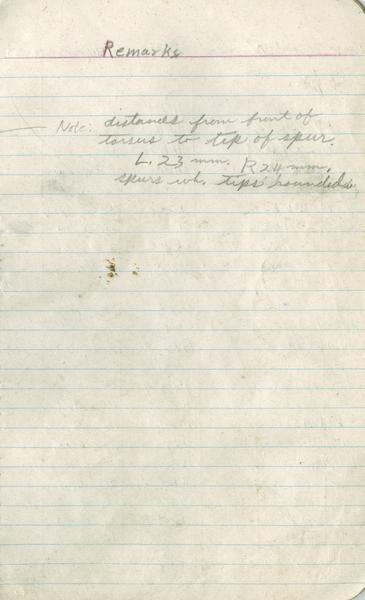 Remarks
Note: distances from front of
tarsus to tip of spur.
L. 23 mm. R 24 mm.
spurs wh. tips rounded